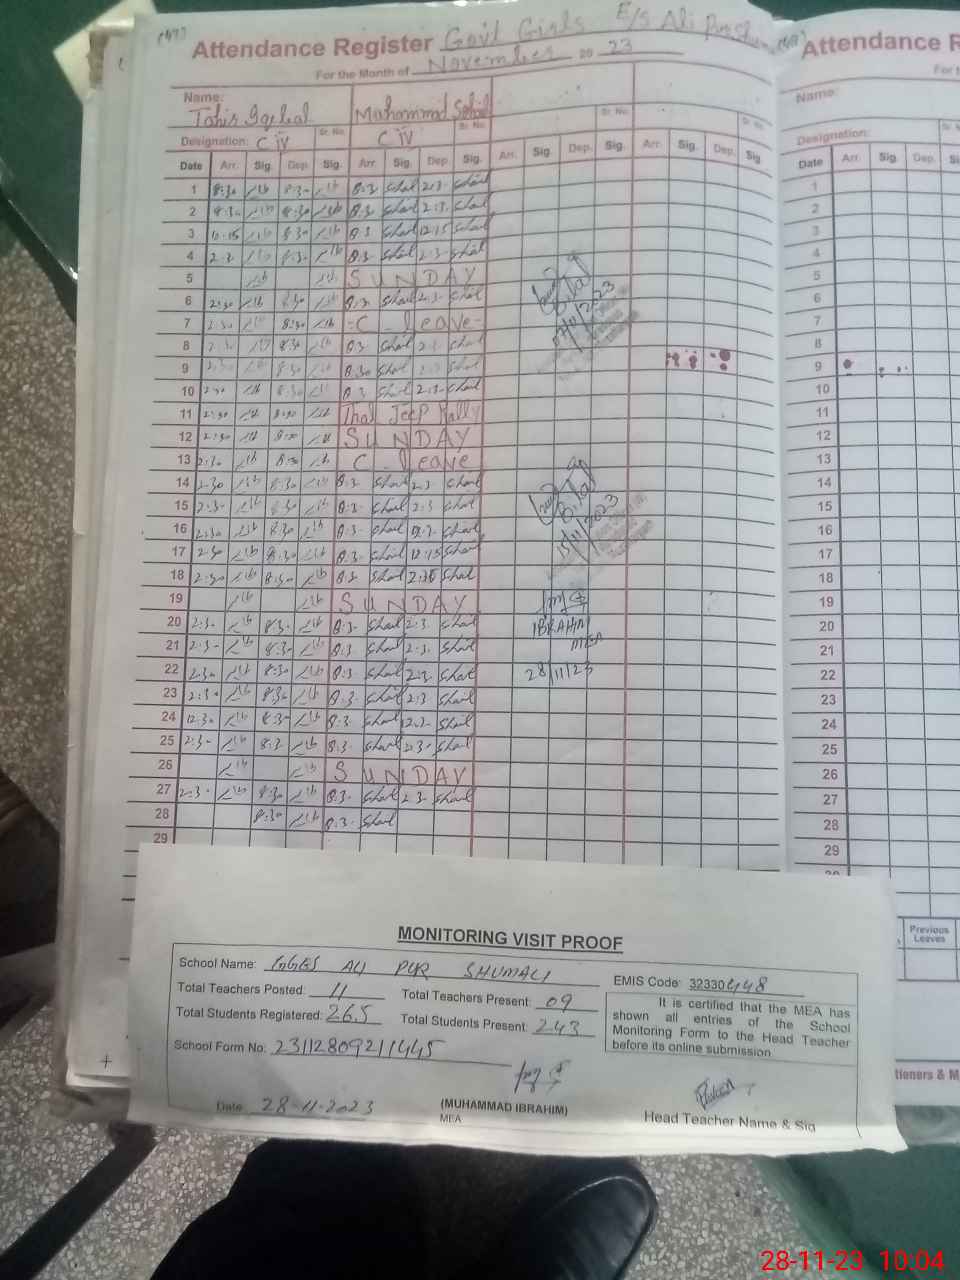 Attendance Register Govt Girls E/S Ali Pur Shumali
For the Month of November 20 23
Name: Tahir Iqbal Muhammad Sohail
Sr. No. Sr. No. Sr. No. Sr. No.
Designation: C IV C IV
Date Arr. Sig. Dep. Sig. Arr. Sig. Dep. Sig. Arr. Sig. Dep. Sig. Arr. Sig. Dep. Sig.
1 8:30 8:30 8:3- Shail 2:3- Shail
2 8:30 8:30 8:3- Shail 2:3- Shail
3 12:15 8:30 8:3 Shail 12:15 Shail
4 2:3- 8:3- 8:3- Shail 2:3- Shail
5 SUNDAY
6 2:30 8:30 8:3- Shail 2:3- Shail
7 2:30 8:30 C - leave -
8 2:3- 8:30 8:3- Shail 2:3- Shail
9 2:30 8:30 8:30 Shail 2:3- Shail
10 2:30 8:30 8:3- Shail 2:3- Shail
11 2:30 8:30 Thal Jeep Rally
12 2:30 8:30 SUNDAY
13 2:30 8:30 C - leave
14 2:30 8:30 8:3- Shail 2:3- Shail
15 2:3- 8:3- 8:3- Shail 2:3 Shail
16 2:30 8:30 8:3- Shail 12:3- Shail
17 2:30 8:30 8:3- Shail 12:15 Shail
18 2:30 8:30 8:3- Shail 2:30 Shail
19 SUNDAY
20 2:3- 8:3- 8:3- Shail 2:3- Shail
21 2:3- 8:3- 8:3- Shail 2:3- Shail
22 2:3- 8:30 8:3- Shail 2:3- Shail
23 2:3- 8:30 8:3- Shail 2:3 Shail
24 12:30 8:30 8:3- Shail 12:3- Shail
25 2:3- 8:3- 8:3- Shail 2:3- Shail
26 SUNDAY
27 2:3- 8:30 8:3- Shail 2:3- Shail
28 8:30 8:3- Shail
29
Bilal
07/11/2023
Bilal
15/11/2023
IBRAHIM
MEA
28/11/23
Attendance R
For t
Name:
Designation:
Date Arr. Sig. Dep. Si
1
2
3
4
5
6
7
8
9
10
11
12
13
14
15
16
17
18
19
20
21
22
23
24
25
26
27
28
29
Previous
Leaves
tioners & M
MONITORING VISIT PROOF
School Name: GGES ALI PUR SHUMALI EMIS Code: 32330448
Total Teachers Posted: 11 Total Teachers Present: 09
Total Students Registered: 265 Total Students Present: 243
It is certified that the MEA has
shown all entries of the School
Monitoring Form to the Head Teacher
before its online submission
School Form No: 23112809211445
Date 28-11-2023
(MUHAMMAD IBRAHIM)
MEA
Head Teacher Name & Sig
28-11-23 10:04